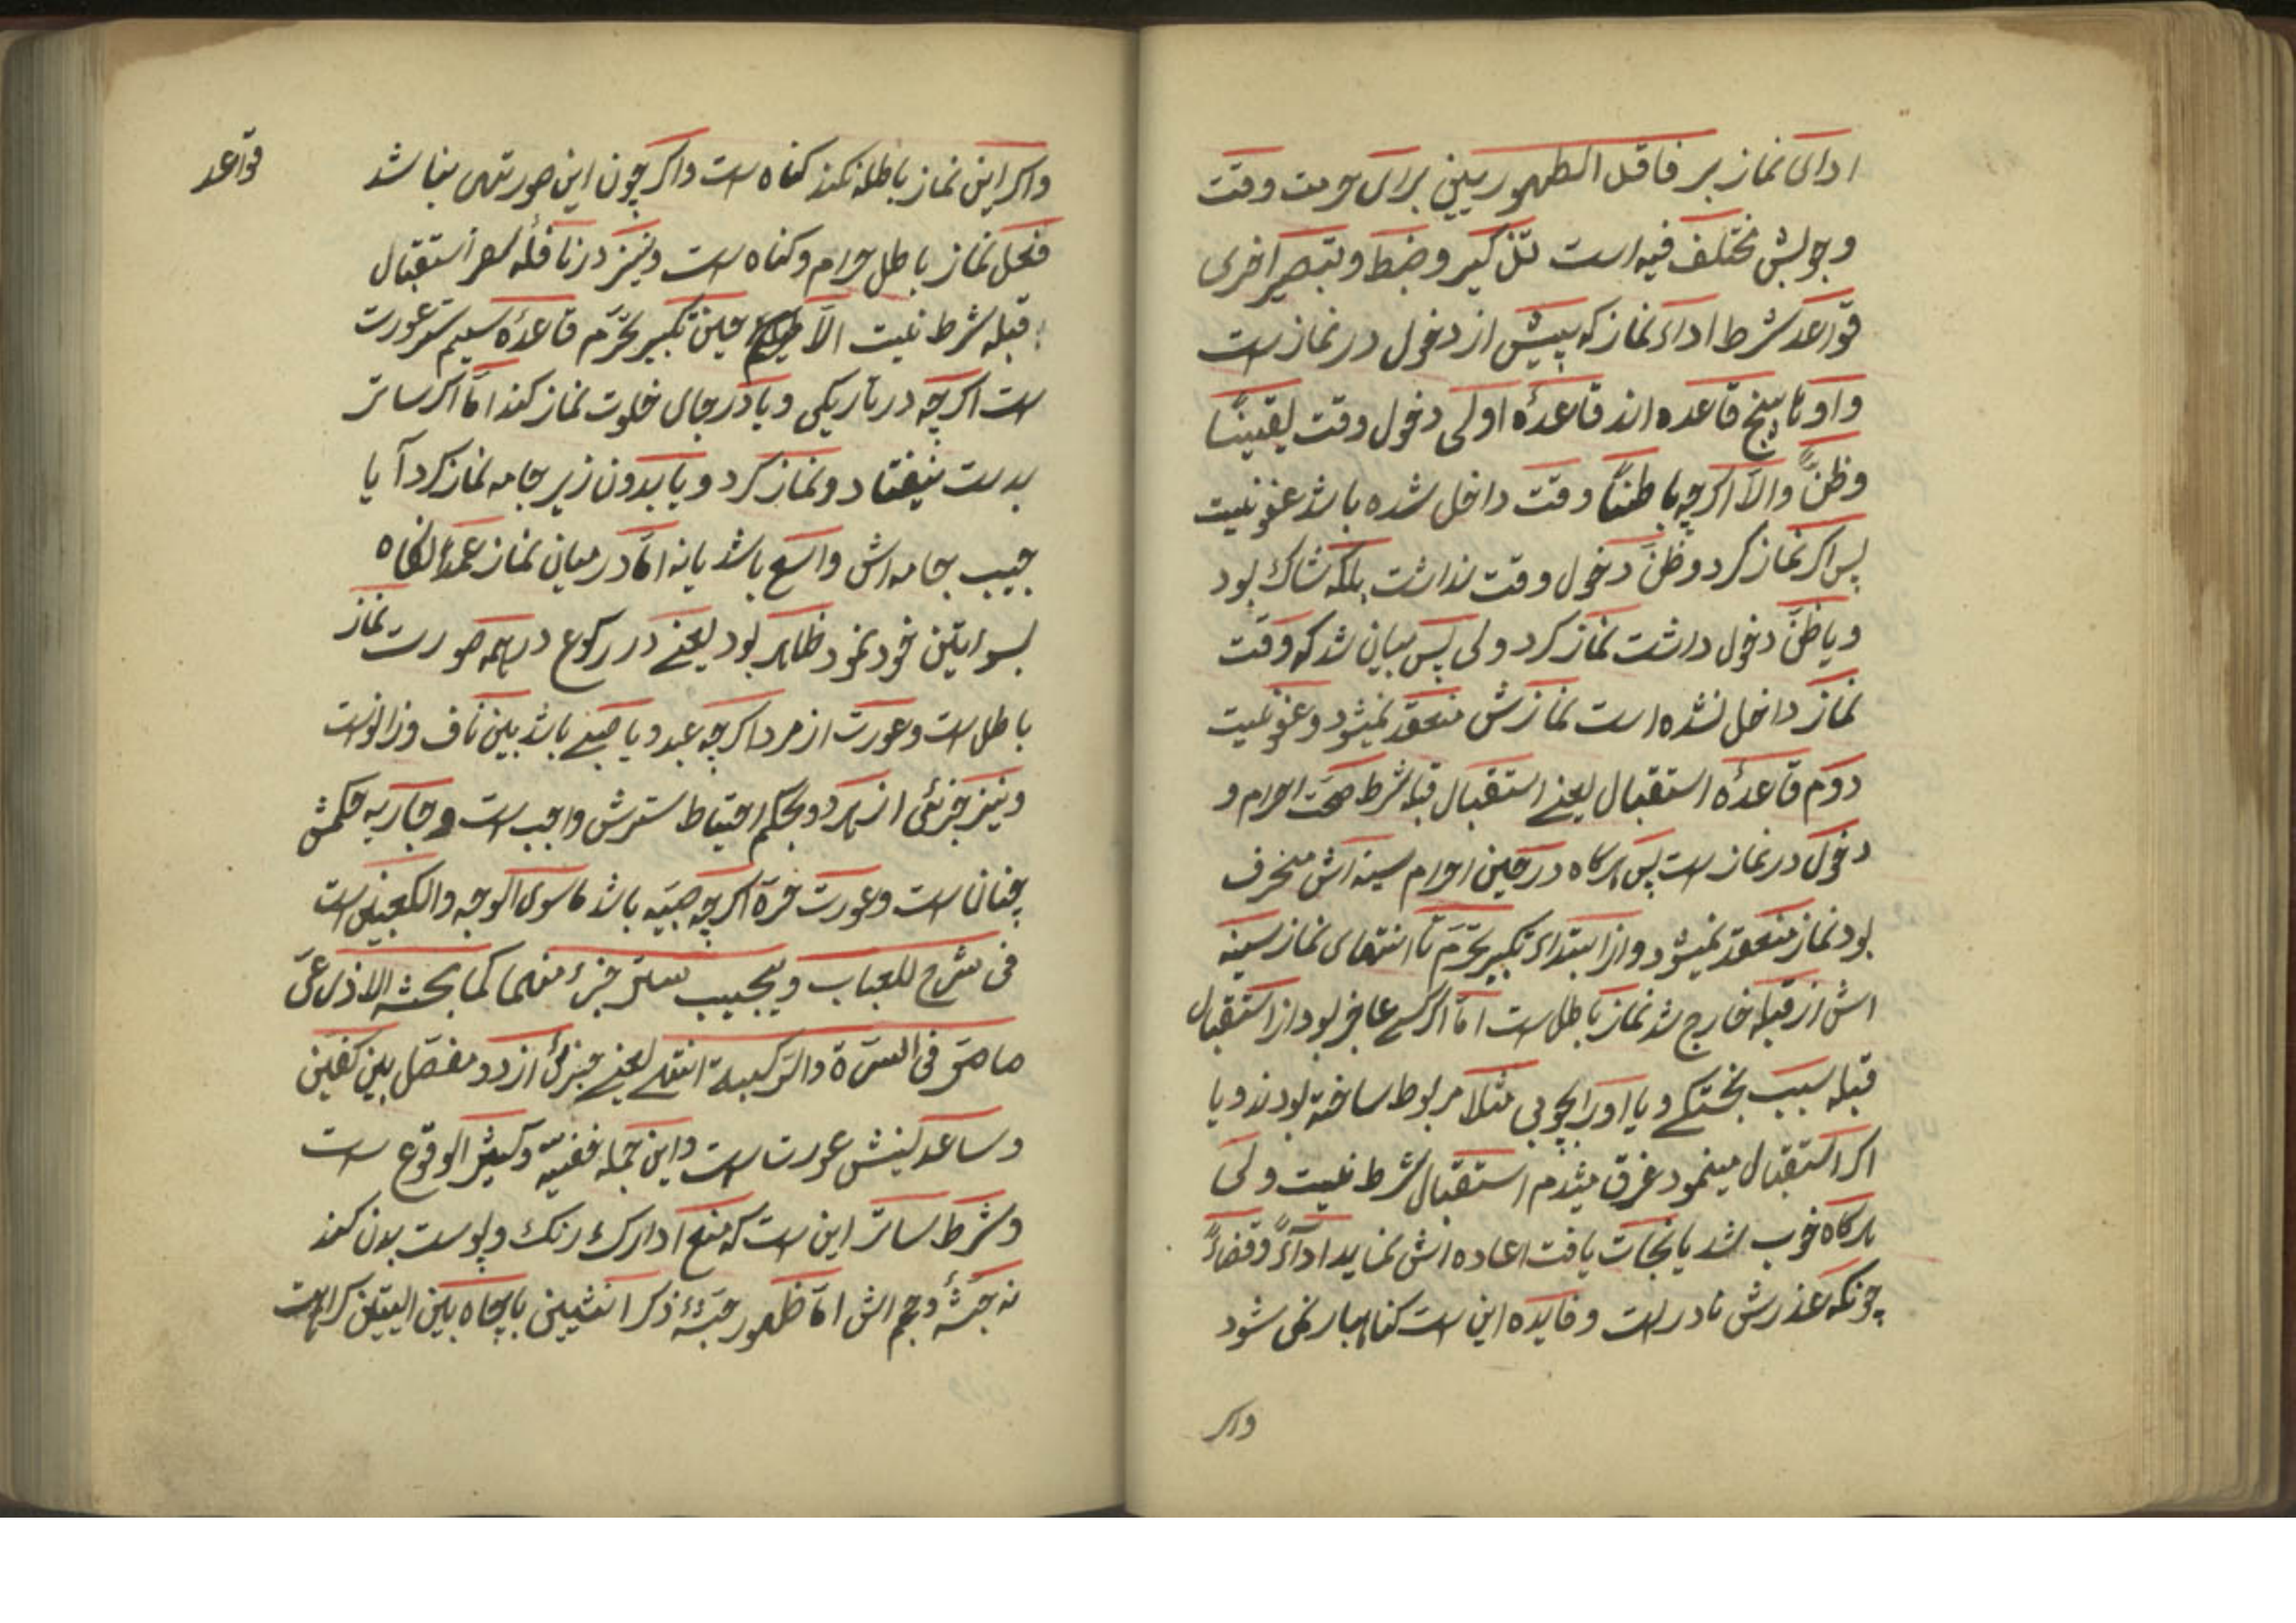 ادای نماز بر فاقد الطهورینین برای حرمت وقت
وجوبش مختلف فیه است تذکیر وضبط وتبصیر اخری
قواعد شرط اداء نماز که پیش از دخول در نماز است
واونا پنج قاعده اند قاعدهٔ اولی دخول وقت یقیناً
وظناً والّا اکرچه باطناً وقت داخل شده باشد عفو نیست
پس اکر نماز کرد وظنّ دخول وقت نداشت بلکه شاک بود
ویا ظنّ دخول داشت نماز کرد ولی پس بیان شد که وقت
نماز داخل نشده است نمازش منعقد نمیشود وعفو نیست
دوّم قاعدهٔ استقبال یعنے استقبال قبله شرط صحّت احرام و
دخول در نماز است پس هرکاه در حین احرام سینه اش منحرف
بود نماز منعقد نمیشود واز ابتداء تکبیر تحرّم تا انتهای نماز سینه
اش از قبله خارج شد نماز باطل است امّا اکر کسے عاجز بود از استقبال
قبله سبب نخستکے ویا اورا بچوبی مثلا مربوط ساخته بودند ویا
اکر استقبال مینمود غرق میشدم استقبال شرط نیست ولی
هرکاه خوب شد یا نجات یافت اعاده اش نماید اداءً وقضاءً
چونکه عذرش نادر است وفایده این است کناهبار نمی شود
واکر
قواعد
واکر این نماز باطله نکند کناه است واکر چون این صورتهی بناشد
فعل نماز باطل حرام وکناه است ونیز در نافلهٔ سفر استقبال
قبله شرط نیست الّا حین تکبیر تحرّم قاعدهٔ سیم ستر عورت
است اکرچه در تاریکی ویا در جای خلوت نماز کند امّا اکر ساتر
بدست نیفتاد ونماز کرد ویا بدون زیر جامه نماز کرد آیا
جیب جامه اش واسع باشد یا نه امّا در میان نماز عمداً نکاه
بسوایتین خود نمود ظاهر بود یعنے در رکوع درهمه صورت نماز
باطل است وعورت از مرد اکرچه عبد ویا صبے باشد بین ناف وزانوست
ونیز جزئی از هر دو بحکم احتیاط سترش واجب است وجاریه حکمش
چنان است وعورت حرّه اکرچه صبیّه باشد ماسوی الوجه والکعبین است
فی شرح للعباب ویجیب ستر جزء منهما کما بحثه الاذرعیّ
ما مرّ فی السرّة والرّکیبة انتهے یعنے جزئی از دو مفصّل بین کفین
وساعدینش عورت است واین جمله خفیّه وکیثر الوقوع است
وشرط ساتر این است که منع ادارک رنک وپوست بدن کند
نه جثّهٔ وحجم اش امّا ظهور جثّهٔ ذکر انثیین یا چاه بین الیتین کراهت